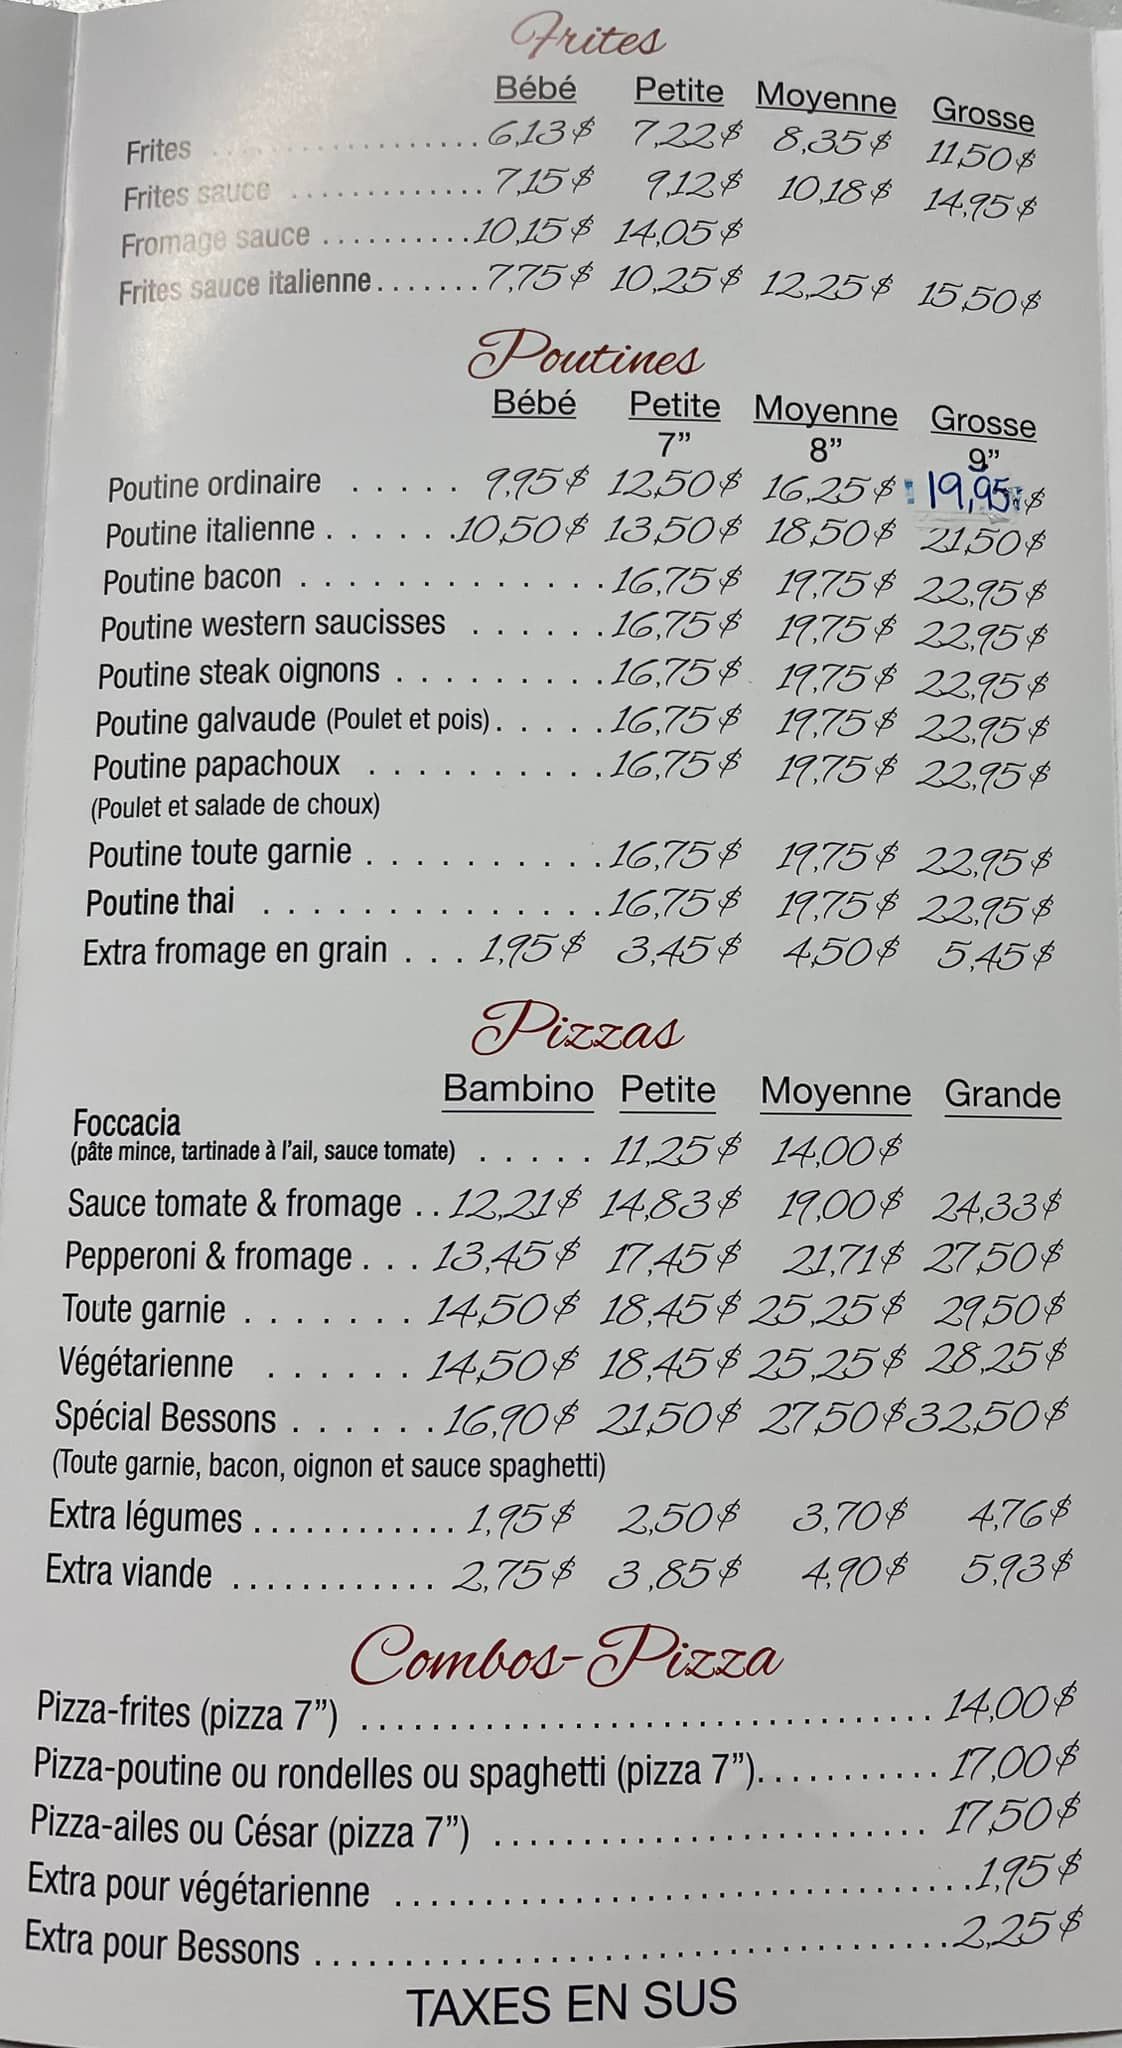 Frites
Bébé Petite Moyenne Grosse
Frites ................. 6,13$ 7,22$ 8,35$ 11,50$
Frites sauce ............. 7,15$ 9,12$ 10,18$ 14,95$
Fromage sauce .......... 10,15$ 14,05$
Frites sauce italienne ....... 7,75$ 10,25$ 12,25$ 15,50$
Poutines
Bébé Petite Moyenne Grosse
7” 8” 9”
Poutine ordinaire . . . . . 9,95$ 12,50$ 16,25$ 19,95$
Poutine italienne . . . . . . 10,50$ 13,50$ 18,50$ 21,50$
Poutine bacon . . . . . . . . . . . . . 16,75$ 19,75$ 22,95$
Poutine western saucisses . . . . . . 16,75$ 19,75$ 22,95$
Poutine steak oignons . . . . . . . . . 16,75$ 19,75$ 22,95$
Poutine galvaude (Poulet et pois) . . . . . 16,75$ 19,75$ 22,95$
Poutine papachoux . . . . . . . . . . 16,75$ 19,75$ 22,95$
(Poulet et salade de choux)
Poutine toute garnie . . . . . . . . . . 16,75$ 19,75$ 22,95$
Poutine thai . . . . . . . . . . . . . . 16,75$ 19,75$ 22,95$
Extra fromage en grain . . . 1,95$ 3,45$ 4,50$ 5,45$
Pizzas
Bambino Petite Moyenne Grande
Foccacia
(pâte mince, tartinade à l’ail, sauce tomate) . . . . . 11,25$ 14,00$
Sauce tomate & fromage . . 12,21$ 14,83$ 19,00$ 24,33$
Pepperoni & fromage . . . 13,45$ 17,45$ 21,71$ 27,50$
Toute garnie . . . . . . . 14,50$ 18,45$ 25,25$ 29,50$
Végétarienne . . . . . . 14,50$ 18,45$ 25,25$ 28,25$
Spécial Bessons . . . . . . 16,90$ 21,50$ 27,50$ 32,50$
(Toute garnie, bacon, oignon et sauce spaghetti)
Extra légumes ............ 1,95$ 2,50$ 3,70$ 4,76$
Extra viande ............ 2,75$ 3,85$ 4,90$ 5,93$
Combos-Pizza
Pizza-frites (pizza 7”) ................................. 14,00$
Pizza-poutine ou rondelles ou spaghetti (pizza 7”)........... 17,00$
Pizza-ailes ou César (pizza 7”) ........................... 17,50$
Extra pour végétarienne .................................. 1,95$
Extra pour Bessons ..................................... 2,25$
TAXES EN SUS